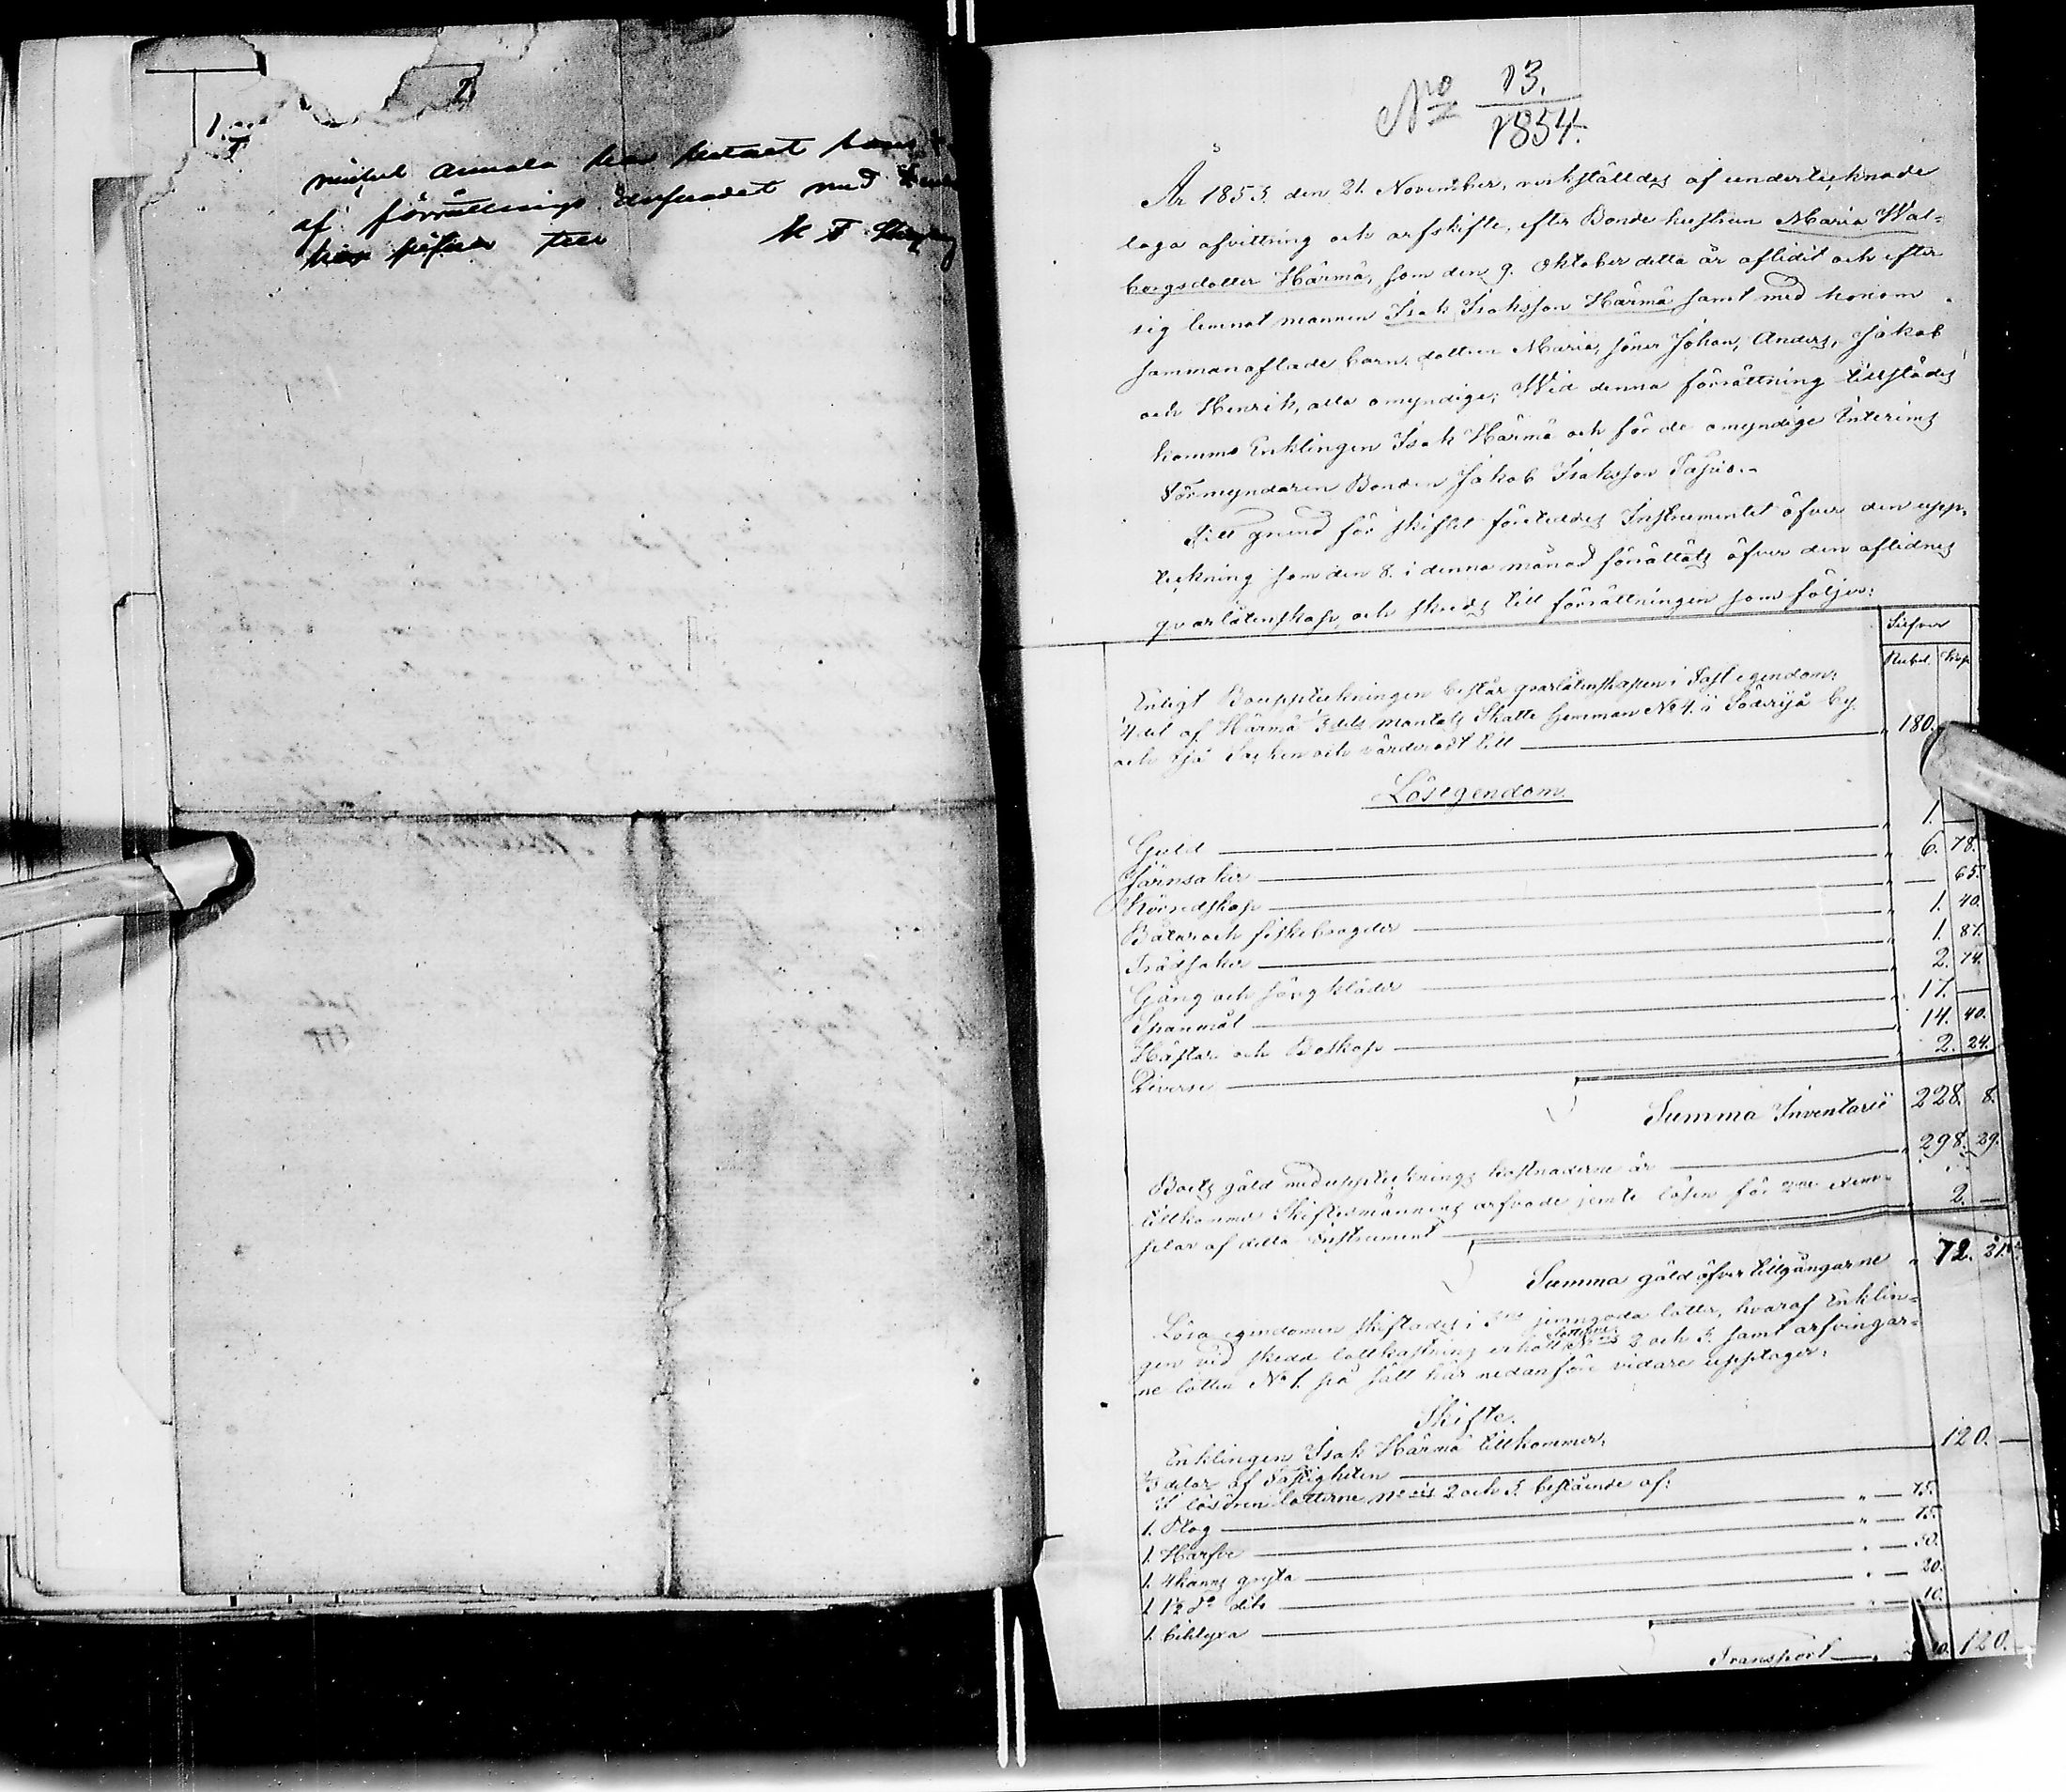 2
1
af förrättnings
till
No 13.
1854.
År 1853 den 21. November, verkställdes af undertecknade
laga afvittring och arfskifte, efter Bonde hustrun Maria Wal-
borgsdotter Härmä, som den 9. Oktober detta år aflidit och efter
sig lemnat mannen Isak Isaksson Härmä samt med honom
sammanaflade barn, dottren Maria, söner Johan, Anders, Jakob
och Henrik, alla omyndige; Wid denna förrättning tillstädes
kommo Enklingen Isak Härmä och för de omyndige Interims
Förmyndaren Bonden Jakob Isaksson
Till grund för skiftet företeddes Instrumentet öfver den upp-
teckning som den 8. i denna månad förrättats öfver den aflidnes
qvarlåtenskap, och skreds till förrättningen som följer:
Silfver
Rubel. Kop.
Enligt Bouppteckningen består qvarlåtenskapen i Fast egendom:
1/4 del af Härmä 1/3 dels Mantals Skatte Hemman No 4. i by
och socken och värderadt till 180.
Lösegendom.
Guld 1. —
Järnsaker 6. 78.
Körredskap — 65.
Båtar och fiskebragder 1. 40.
Trädsaker 1. 87.
Gång och sängkläder 2. 74.
Spanmål 17. —
Hästar och Boskap 14. 40.
Diverse 2. 24.
Summa Inventarii 228. 8.
Boets gäld med uppteckningskostnaderne är 298. 29.
tillkommer Skiftesmännens arfvode jemte lösen för 2ne exem-
plar af detta Instrument 2. —
Summa gäld öfver tillgångarne 72. 21.
Lösa egendomen skiftades i 3ne jemngoda lotter, hvaraf Enklin-
gen vid skedd lottkastning erhöll lotterne No 2 och 3. samt arfvingar-
ne lotten No 1. på sätt här nedanföre vidare upptages:
Skifte.
Enklingen Isak Härmä tillkommer:
2/3 delar af Fastigheten 120. —
I lösören lotterne No 2 och 3. bestående af:
1. Plog — 75.
1. Harf — 75.
1. 4 kanns gryta — 50.
1. 1½ do dito — 20.
1. bihlyxa — 10.
Transport 120.